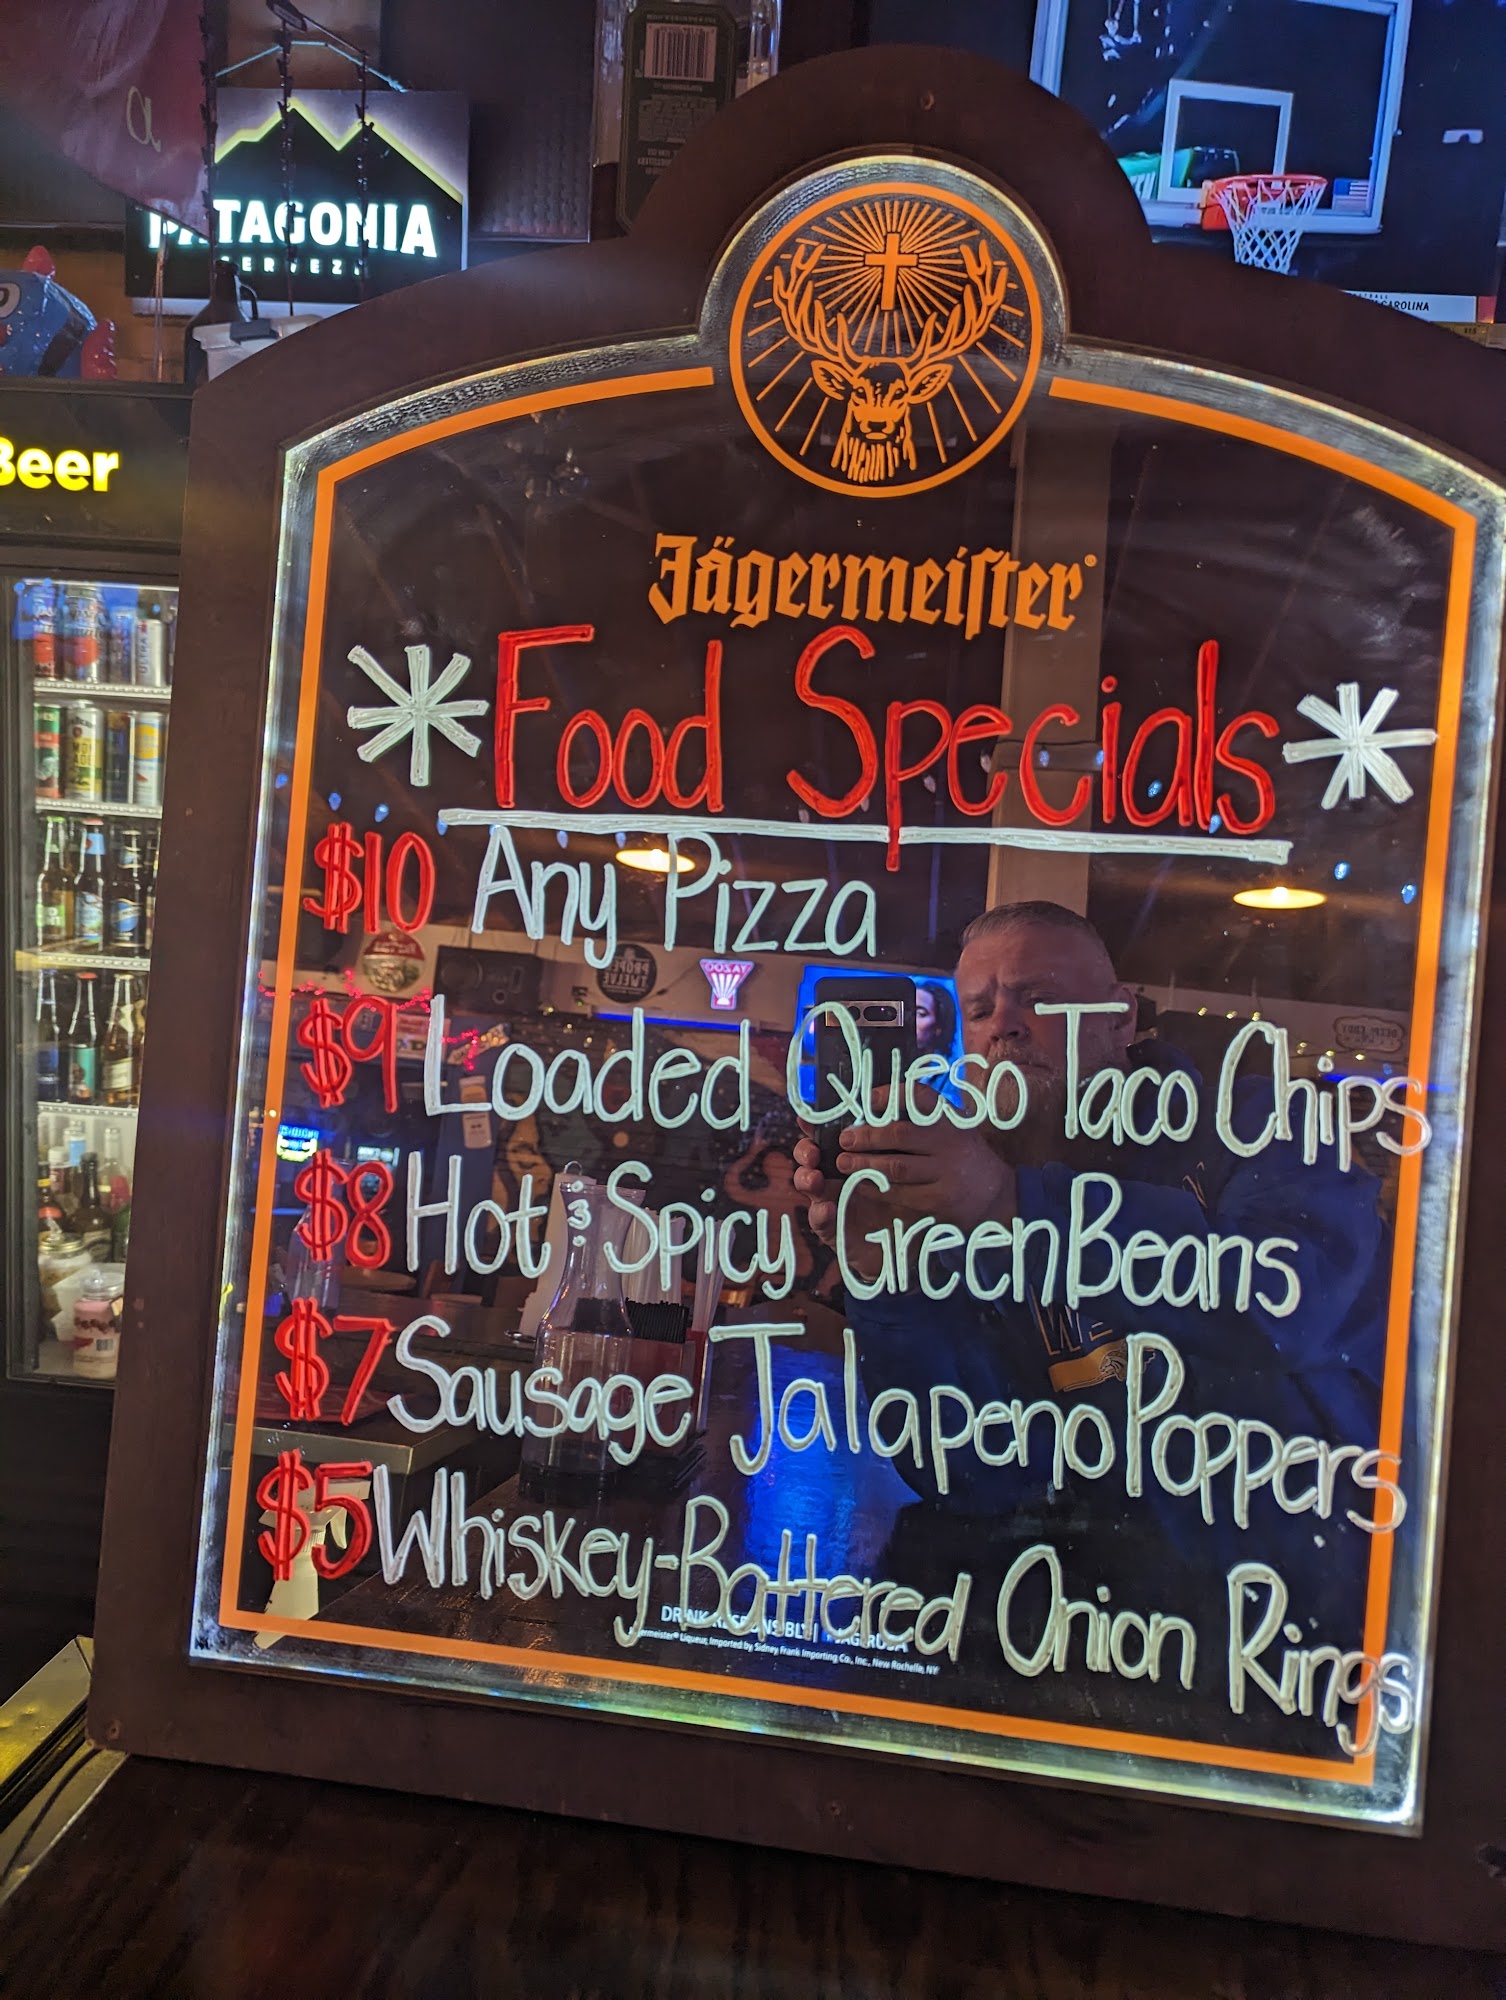 PATAGONIA
CERVEZA
CAROLINA
Beer
Jägermeister
Food Specials
$10 Any Pizza
$9 Loaded Queso Taco Chips
$8 Hot & Spicy Green Beans
$7 Sausage Jalapeno Poppers
$5 Whiskey-Battered Onion Rings
DRINK RESPONSIBLY |
Jägermeister® Liqueur, Imported by Sidney Frank Importing Co., Inc., New Rochelle, NY